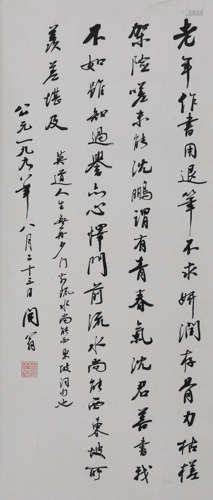 老年作書用退筆不求妍潤存骨力枯槎
架險嗟未能沈鵬謂有青春氣沈君善書我
不如雖知過譽亦心懌門前流水尚能西東坡所
羨差堪及
莫道人生無再少门前流水尚能西東坡词句也
公元一九九年八月二十三日翁